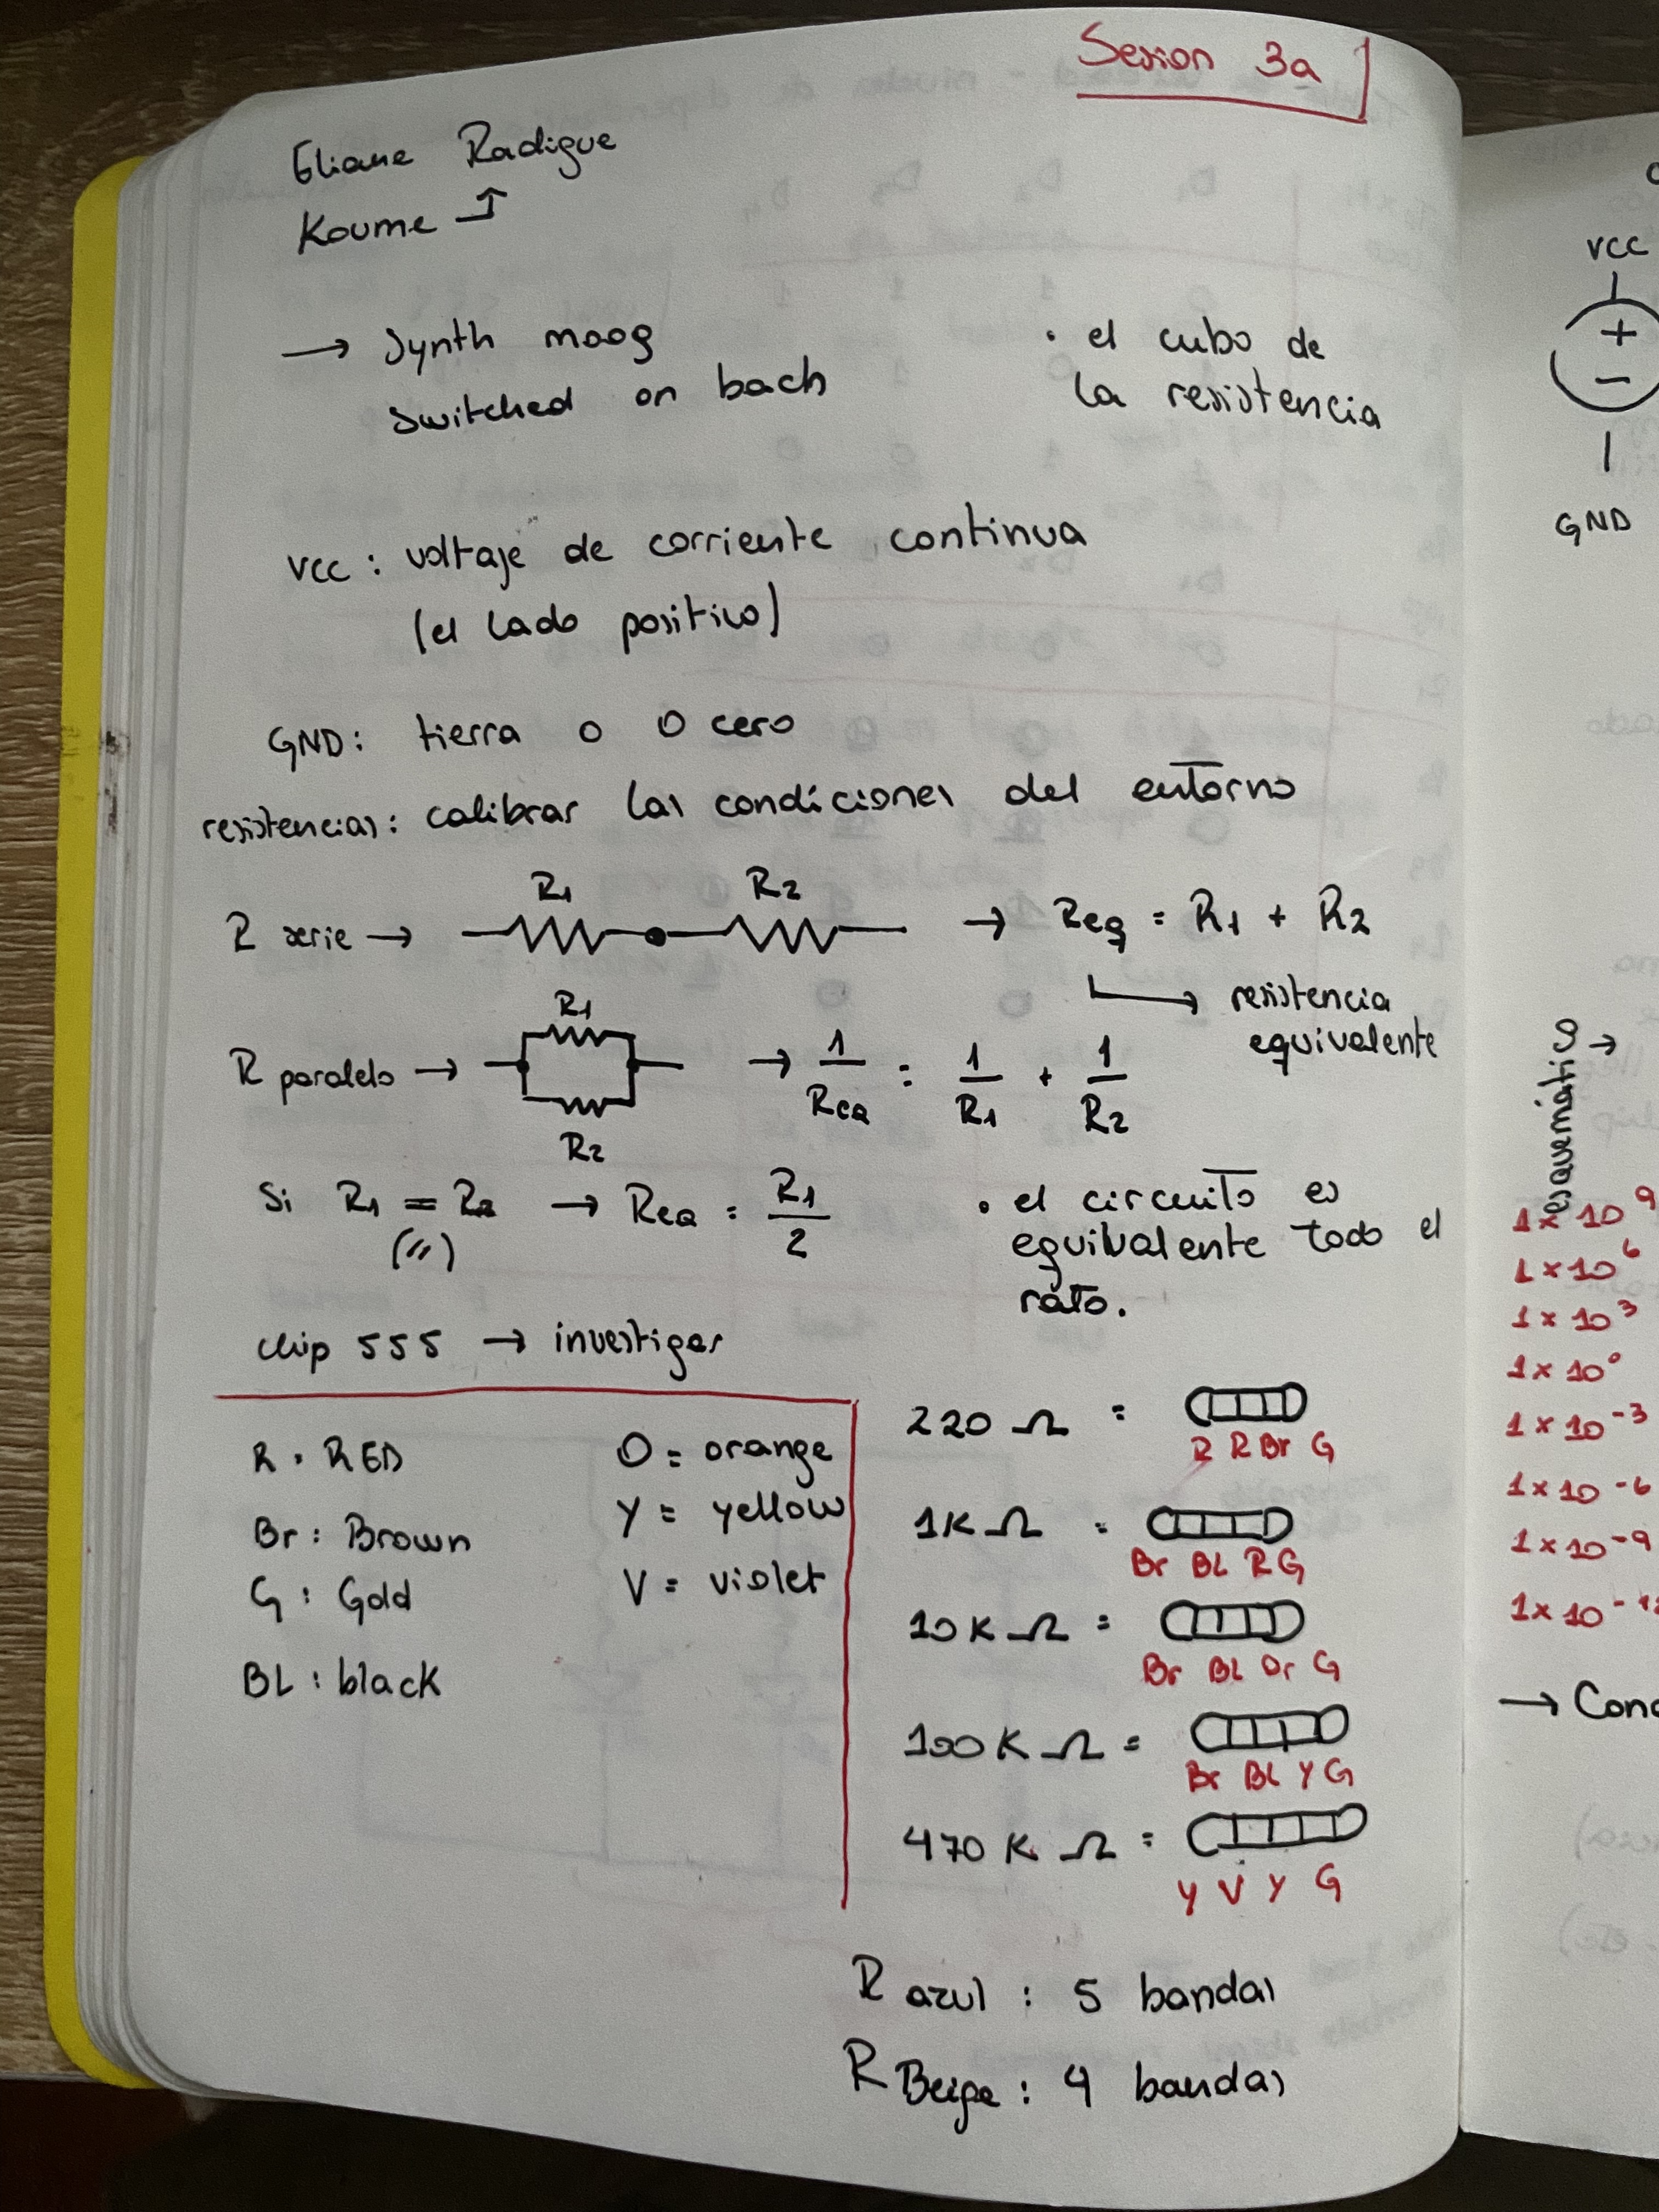 Sesion 3a
Eliane Radigue
Koume ↑
→ Synth moog
switched on bach
• el cubo de
la resistencia
VCC : voltaje de corriente continua
(el lado positivo)
GND: tierra o 0 cero
resistencias: calibrar las condiciones del entorno
R serie → R1 R2 → Req = R1 + R2
resistencia
equivalente
R paralelo → R1 R2 → 1/Req = 1/R1 + 1/R2
Si R1 = R2 → Req = R1/2
(//)
• el circuito es
equivalente todo el
rato.
chip 555 → investigar
R = RED
Br : Brown
G : Gold
BL : black
O = orange
Y = yellow
V = violet
220 Ω =
R R Br G
1K Ω =
Br BL R G
10K Ω =
Br BL Or G
100K Ω =
Br BL Y G
470 K Ω =
Y V Y G
R azul : 5 bandas
R Beige : 4 bandas
VCC
+
−
GND
esquemático →
1 x 10^9
1 x 10^6
1 x 10^3
1 x 10^0
1 x 10^-3
1 x 10^-6
1 x 10^-9
1 x 10^-12
→ Con